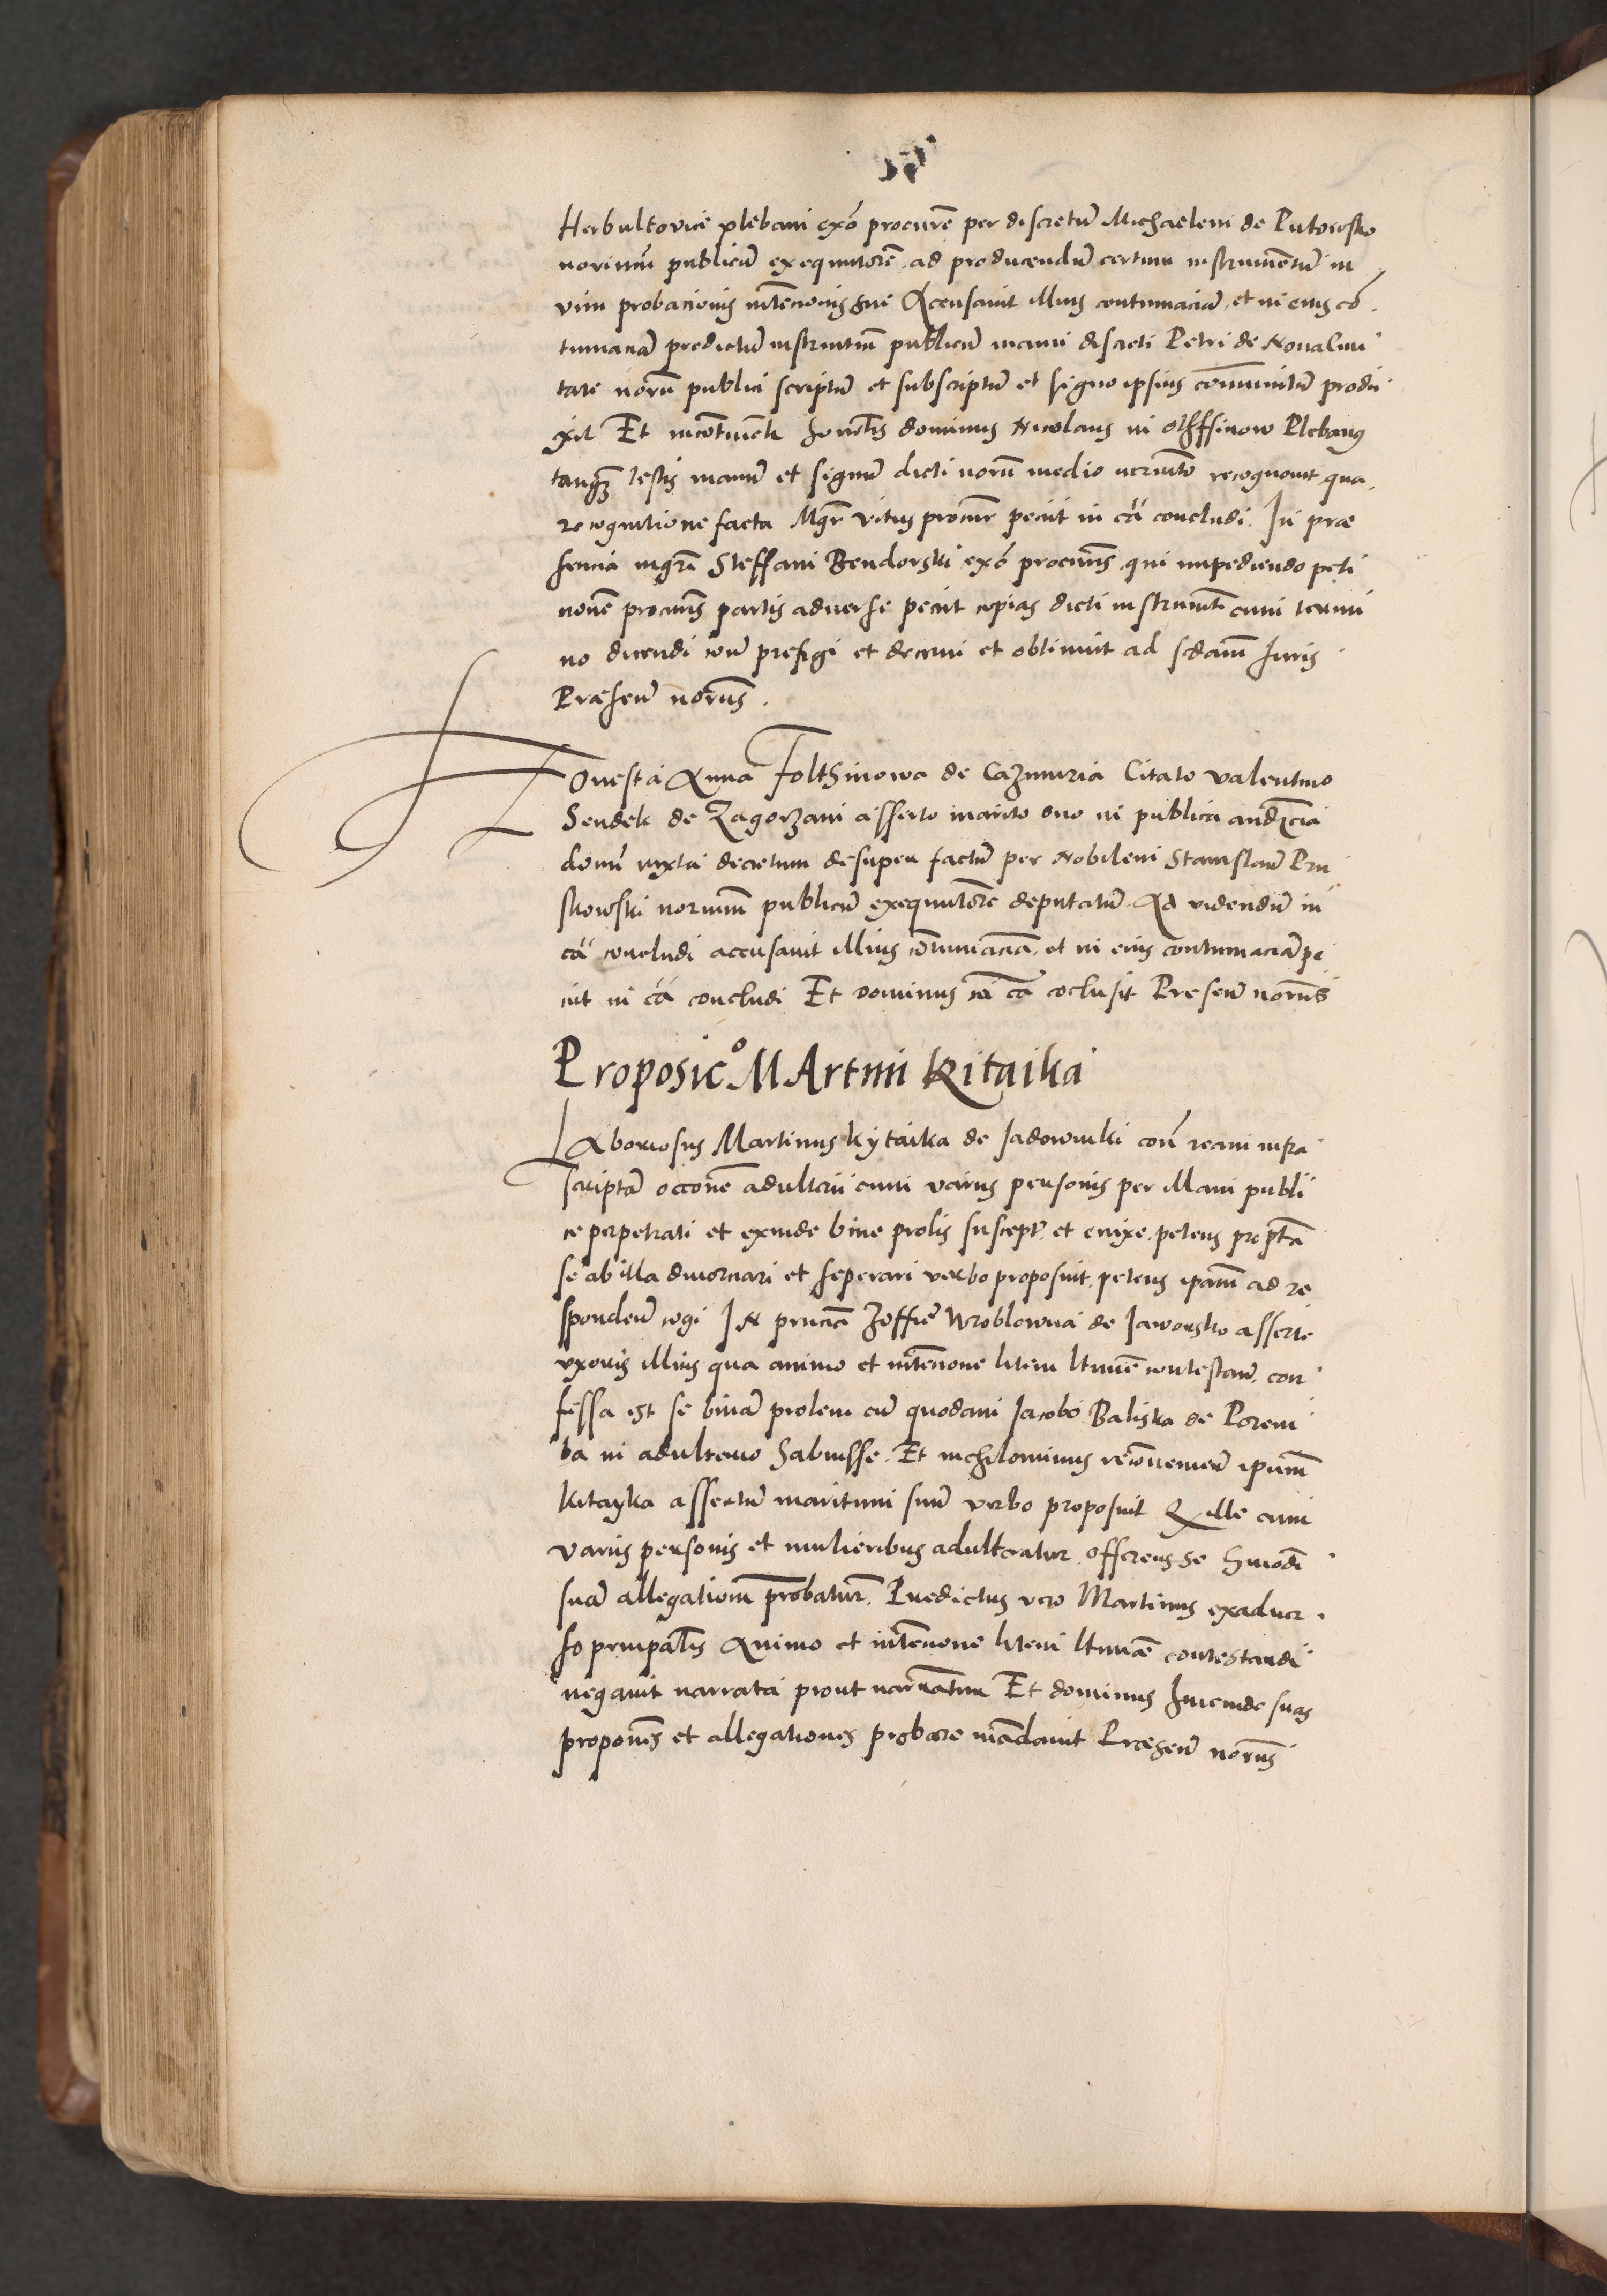 Herbultovice plebani exō procurē per discretū Michaelem de Putowsko
noriuū publicū exequutorē ad producendū certum instrumentū in
vim probacionis intēcionis sue Accusavit illius contumaciā et in eius cō
tumaciā predictū instrumtū publicū manu discreti Petri de Novaciui
tate norū publici scriptū et subscriptū et signo ipsius cōmunitū produ
xit Et incōtinēti honolis dominus Nicolaus in Plebanus
tanqȝ testis manū et signū dicti norū medio iuramto recognovit qua
recognitione facta Mgr Vitus procur peciit in cā concludi. In præ
sencia mgri Steffani Bendorski exō procuris qui impediendo peti
nonē procuris partis adverse peciit copias dicti instrumti cum termi
no dicendi cont prefigi et decerni et obtinuit ad scdam Juris
Præsen norus
Honesta Anna Folthinowa de Cazimiria Citato Valentino
Sendek de Zagorzani asserto marito suo in publica audiēcia
domū iuxta decretum desuper factū per Nobilem Stanislaū Pru
skowski noriuum publicū exequutorē deputatū Ad videndū in
cā concludi accusavit illius cōtumaciā et in eius contumaciā pe
ciit in cā concludi Et dominus in cā cōclusit Presen norus
Proposicō MArtini Kitaika
LAboriosus Martinus Kytaika de Jadowniki con ream infra
scriptā occōnē adulterii cum variis personis per illam publi
ce perpetrati et exinde bine prolis suscept et enixe, petens prepta
se ab illa divorciari et seperari verbo proposuit, petens ipam ad re
spondeū cogi IN pncia Zoffie Wroblowna de Jaworsko asserte
uxoris illius qua animo et intēcione litem ltimē contestan, con
fessa est se binā prolem cū quodam Jacobo Baliska de Porem
ba in adulterio habuisse. Et nichilominus recōveniendo ipum
Kitayka assertū maritum suū verbo proposuit Q ille cum
variis personis et mulieribus adulteratur, offerens se hmodi
suā allegationem probaturā. Predictus vero Martinus exadver
so prncipalis Animo et intēcione litem ltimē contestandi
negavit narrata prout narrantur Et dominus hincinde suas
proponēs et allegationes probare mādavit Præsen norus